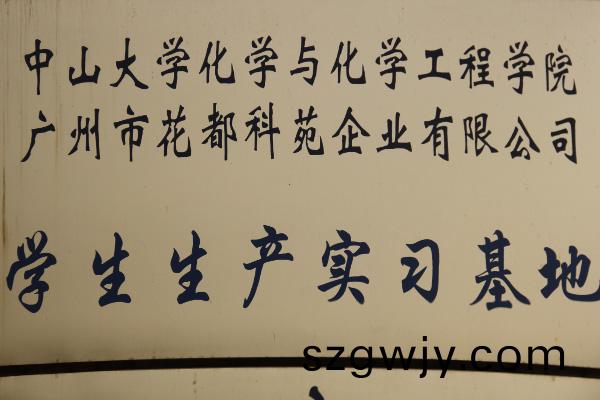 中山大学化学与化学工程学院
广州市花都科苑企业有限公司
学生生产实习基地
szgwjy.com